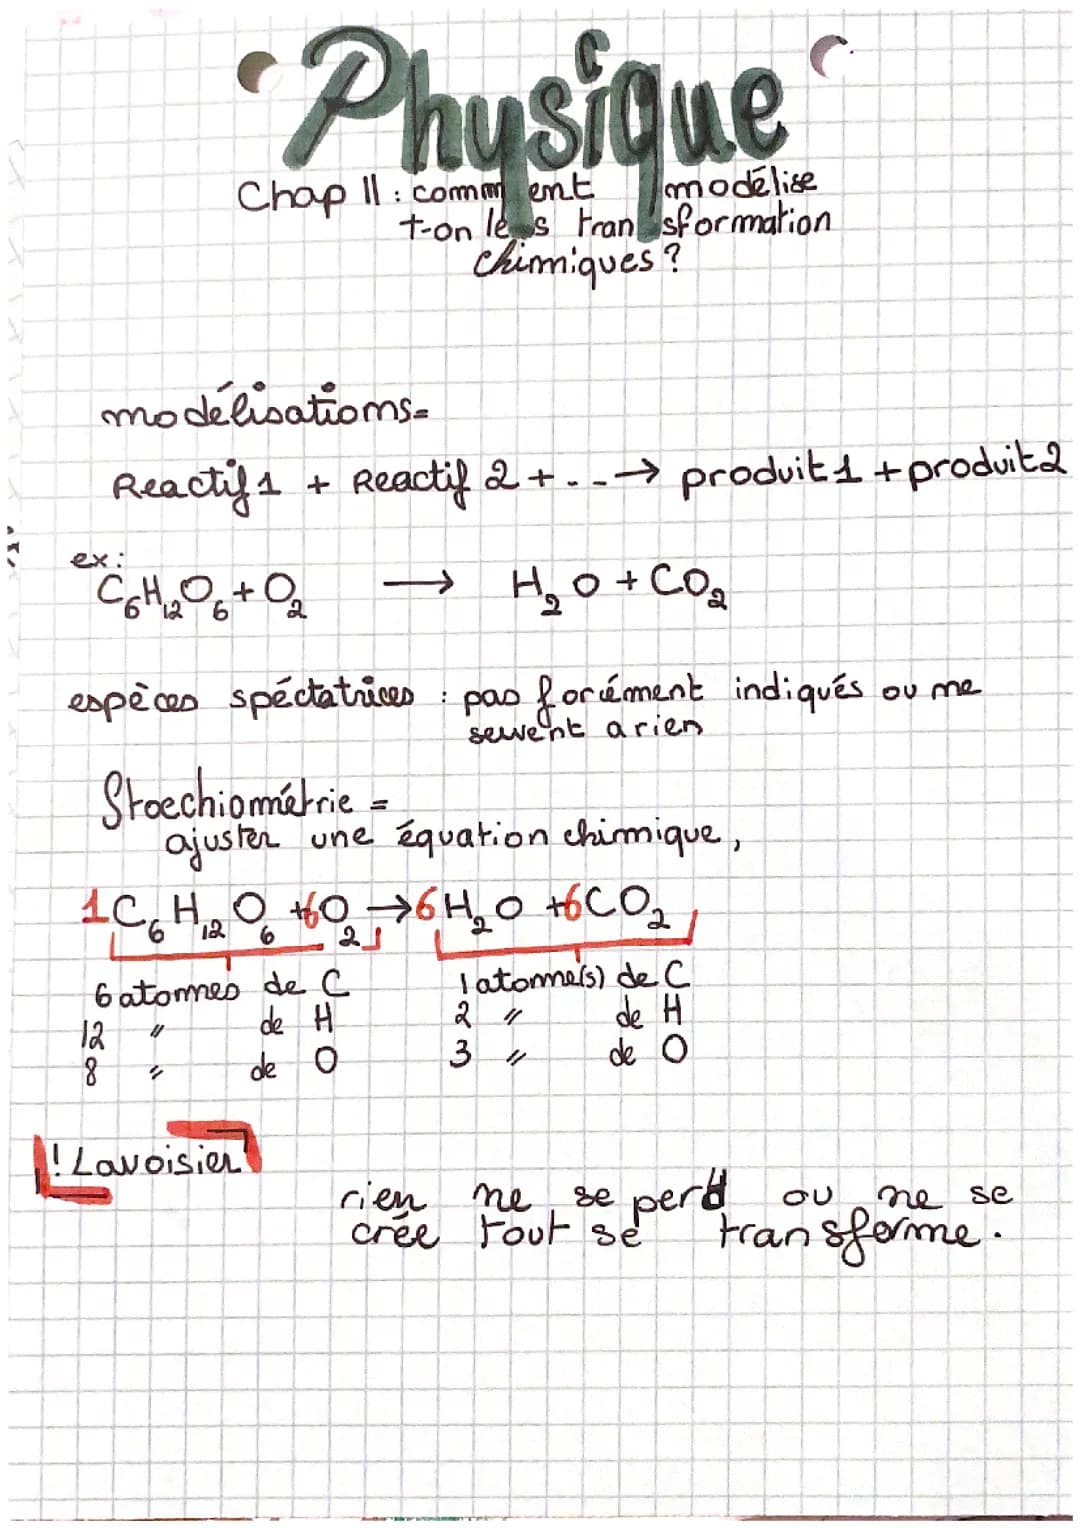 Physique
Chap 11 : comment modélise
t-on les transformation
chimiques ?
modélisations=
Reactif 1 + Reactif 2 + - - → produit 1 + produit 2
ex :
C₆H₁₂O₆ + O₂ → H₂O + CO₂
espèces spéctatrices : pas forcément indiqués ou ne
servent a rien
Stoechiométrie =
ajuster une équation chimique,
1C₆H₁₂O₆ + 6O₂ → 6H₂O + 6CO₂
6 atomes de C 1 atome(s) de C
12 " de H 2 " de H
8 " de O 3 " de O
! Lavoisier
rien ne se perd ou ne se
crée tout se transforme.